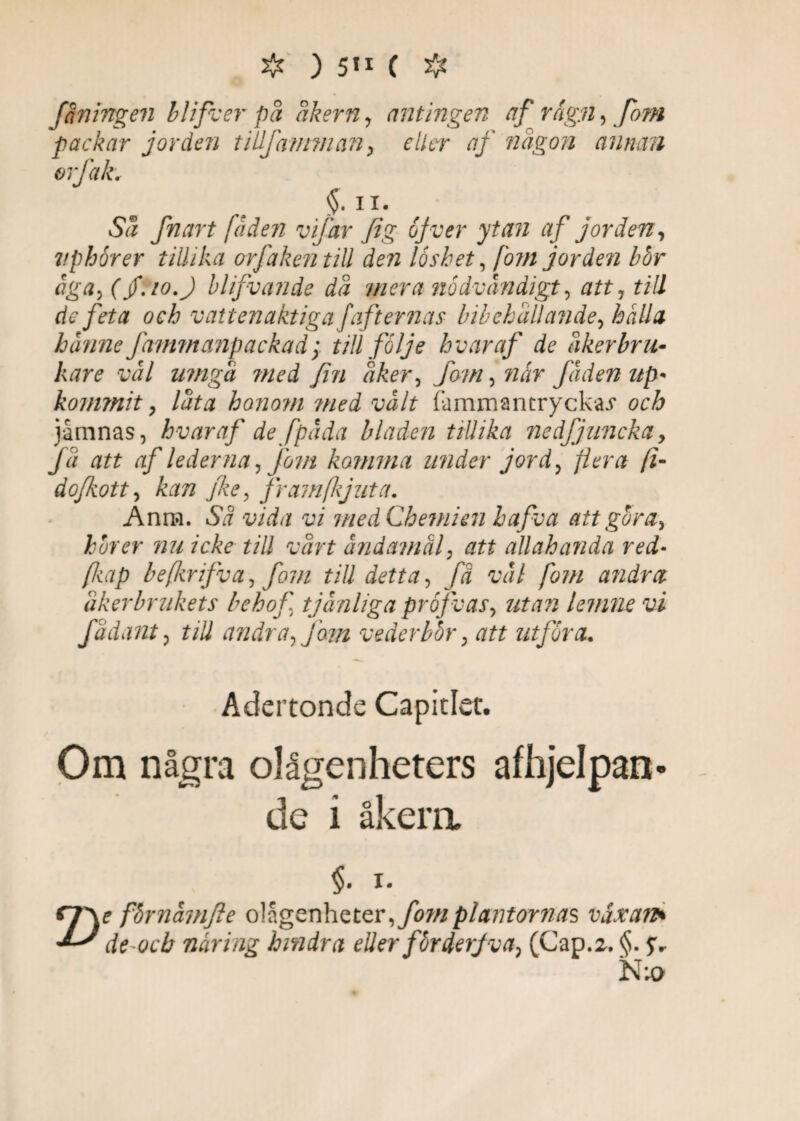 ☼ ) 511 ( ☼
ſåningen blifver på åkern, antingen af rågn, ſom
packar jorden tillſamman, eller af någon annan
orſak.
§. 11.
Så ſnart ſåden viſar ſig öfver ytan af jorden,
uphörer tillika orſaken till den löshet, ſom jorden bör
äga, (§.10.) blifvande då mera nödvändigt, att, till
de feta och vattenaktiga ſafternas bibehållande, hålla
hänne ſammanpackad; till följe hvaraf de åkerbru-
kare väl umgå med ſin åker, ſom, når ſåden up-
kommit, låta honom med vält ſammantryckas och
jämnas, hvaraf de ſpäda bladen tillika nedſjuncka,
få att af lederna, ſom komma under jord, flera ſi-
doſkott, kan ſke, framſkjuta.
Anm. Så vida vi med Chemien hafva att göra,
hörer nu icke till vårt ändamål, att allahanda red-
ſkap beſkrifva, ſom till detta, få väl ſom andra
åkerbrukets behof, tjänliga pröfvas, utan lemne vi
ſådant, till andra, ſom vederbör, att utföra.
Adertonde Capitlet.
Om några olägenheters afhjelpan-
de i åkern.
§. 1.
De förnämſte olägenheter, ſom plantornas växan-
de och näring hindra eller förderfva, (Cap.2. §. 5.
N:o